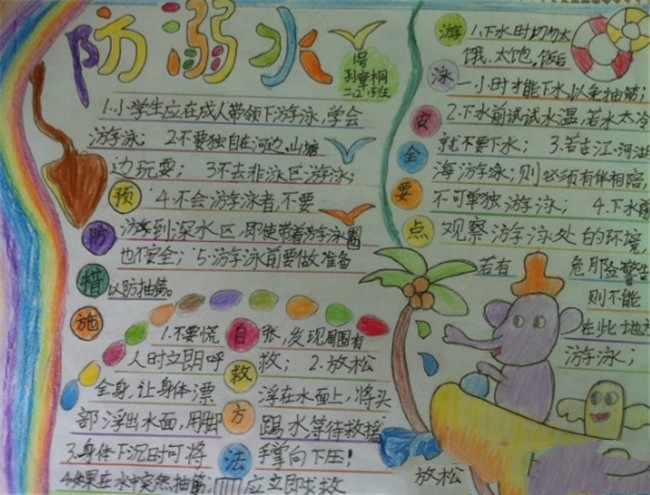 防溺水
1号
二(2)班
1.小学生应在成人带领下游泳,学会
游泳; 2.不要独自在河边、山塘
边玩耍; 3.不去非泳区游泳;
4.不会游泳者,不要
游到深水区,即使带着游泳圈
也不安全; 5.游泳前要做准备
以防抽筋。
预防措施
自救方法
1.不要慌张,发现周围有
人时立即呼救; 2.放松
全身,让身体漂浮在水面上,将头
部浮出水面,用脚踢水等待救援
3.身体下沉时可将手掌向下压!
4.如果在水中突然抽筋,应立即求救
放松
游泳安全要点
1.下水时切勿太
饿、太饱,饭后
一小时才能下水以免抽筋;
2.下水前试试水温,若水太冷
就不要下水; 3.若在江、河、湖
海游泳;则必须有伴相陪,
不可单独游泳; 4.下水前
观察游泳处的环境,
若有危险警告
则不能
在此地方
游泳;